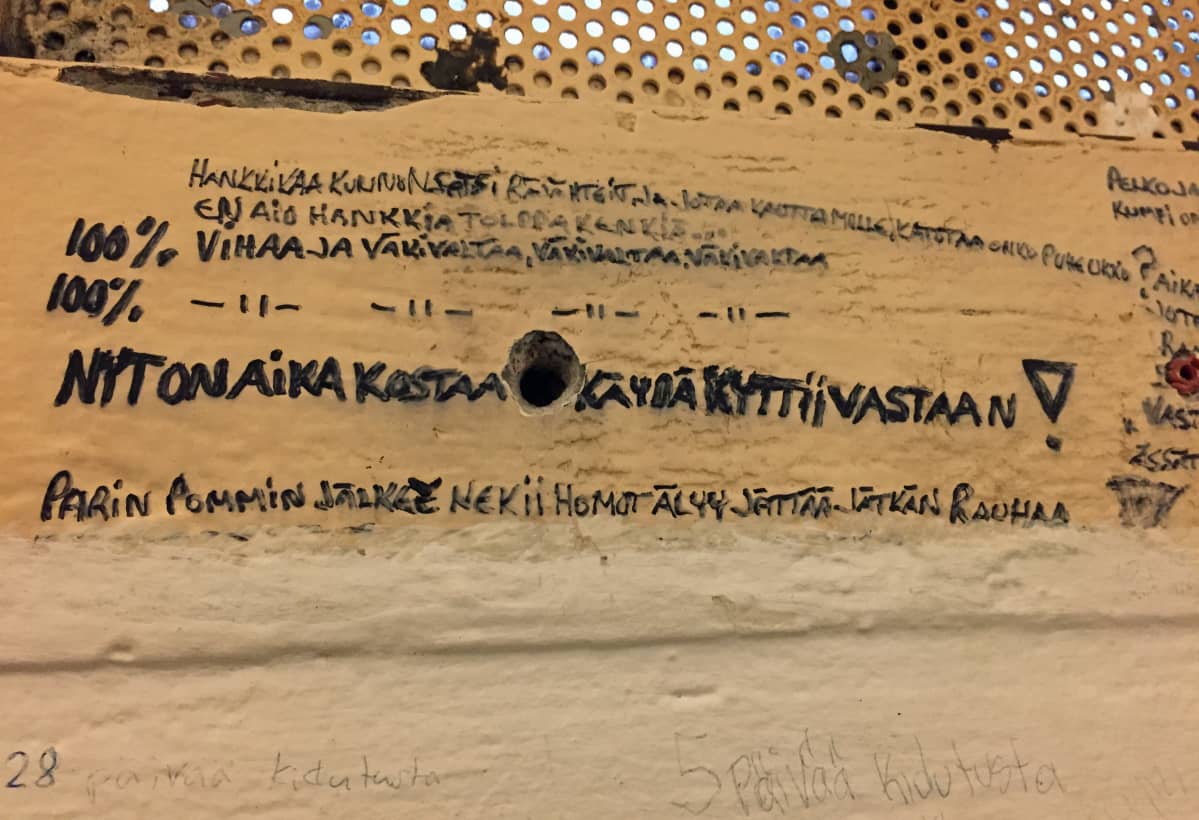 HANKKIKAA KUNNON SATSI RÄJÄHTEIT JA JOTAA KAUTTA MULLE, KATOTAA ONKO PUHE UKKO
EN AIO HANKKIA TOLPPAKENKIÄ...
100% VIHAA JA VÄKIVALTAA, VÄKIVALTAA, VÄKIVALTAA
100% —II— —II— —II— —II—
NYT ON AIKA KOSTAA KÄYDÄ KYTTII VASTAAN!
PARIN POMMIN JÄLKEE NEKII HOMOT ÄLYY JÄTTÄÄ JÄTKÄN RAUHAA
28 päivää kidutusta
5 Päivää Kidutusta
PELKOJA
KUMPI ON
? AIKA